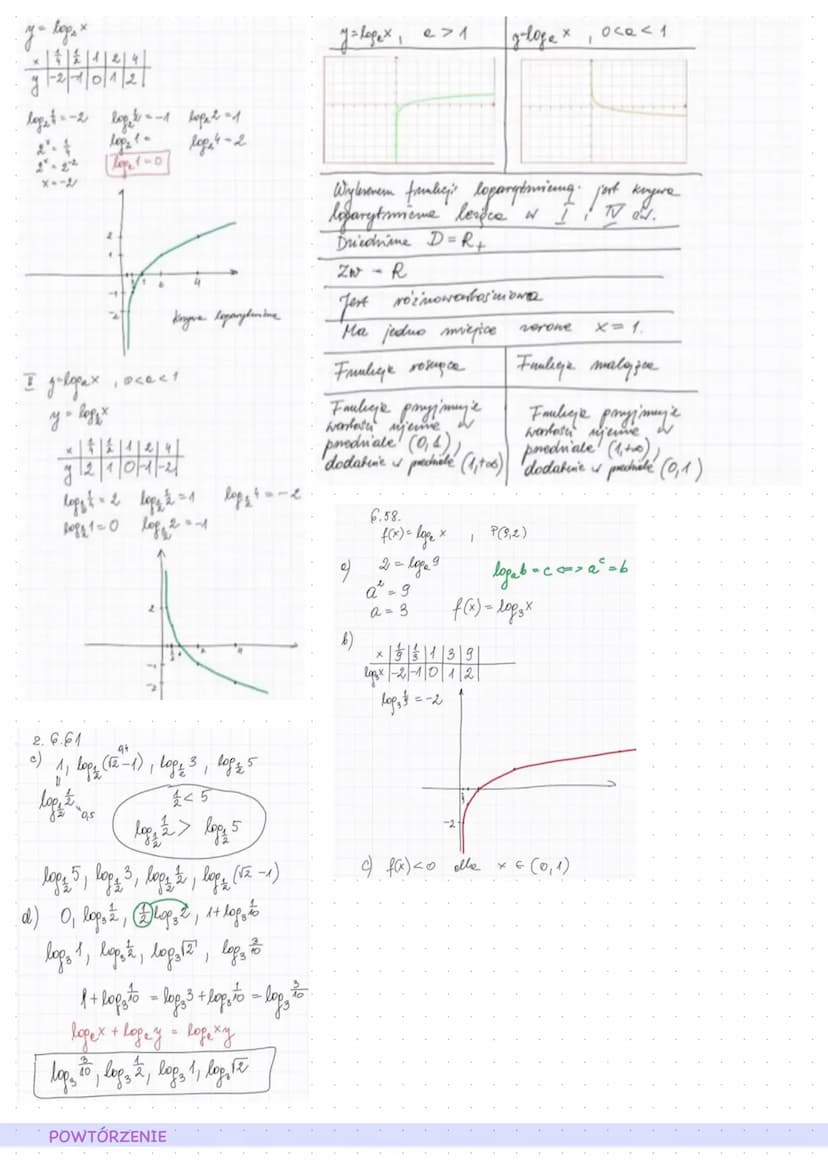 y = log₂x
x | 1/4 | 1/2 | 1 | 2 | 4
y | -2 | -1 | 0 | 1 | 2
log₂ 1/4 = -2 log₂ 1/2 = -1 log₂ 2 = 1
2ˣ = 1/4 log₂ 1 = log₂ 4 = 2
2ˣ = 2⁻² log₂ 1 = 0
x = -2
2
1
1 2 4
-1
-2
krzywa logarytmiczna
II y = logₐx , 0<a<1
y = log_1/2 x
x | 1/4 | 1/2 | 1 | 2 | 4
y | 2 | 1 | 0 | -1 | -2
log_1/2 1/4 = 2 log_1/2 1/2 = 1 log_1/2 4 = -2
log_1/2 1 = 0 log_1/2 2 = -1
2
-1
-2
y = logₐx , a > 1
y = logₐx , 0<a<1
Wykresem funkcji logarytmicznej jest krzywa
logarytmiczna leżąca w I i IV ćw.
Dziedzina D = R₊
Zw = R
Jest różnowartościowa
Ma jedno miejsce zerowe x = 1.
Funkcja rosnąca
Funkcja malejąca
Funkcja przyjmuje
wartości ujemne w
przedziale (0,1),
dodatnie w przedziale (1,+∞)
Funkcja przyjmuje
wartości ujemne w
przedziale (1,+∞),
dodatnie w przedziale (0,1)
6.58.
f(x) = logₐ x , P(9,2)
a) 2 = logₐ 9 logₐb = c <=> aᶜ = b
a² = 9
a = 3 f(x) = log₃x
b)
x | 1/9 | 1/3 | 1 | 3 | 9
log₃x | -2 | -1 | 0 | 1 | 2
log₃ 1/9 = -2
1
-2
c) f(x) < 0 dla x ∈ (0,1)
2. 6.61
0,4
c) 1, log_1/2 (√2-1), log_1/2 3, log_1/2 5
log_1/2 1/2 0,5
1/2 < 5
log_1/2 1/2 > log_1/2 5
log_1/2 5, log_1/2 3, log_1/2 1/2, log_1/2 (√2-1)
d) 0, log₃ 1/2, 1/2 log₃ 2, 1 + log₃ 1/10
log₃ 1, log₃ 1/2, log₃ √2, log₃ 3/10
1 + log₃ 1/10 = log₃ 3 + log₃ 1/10 = log₃ 3/10
logₐx + logₐy = logₐxy
log₃ 3/10, log₃ 1/2, log₃ 1, log₃ √2
POWTÓRZENIE